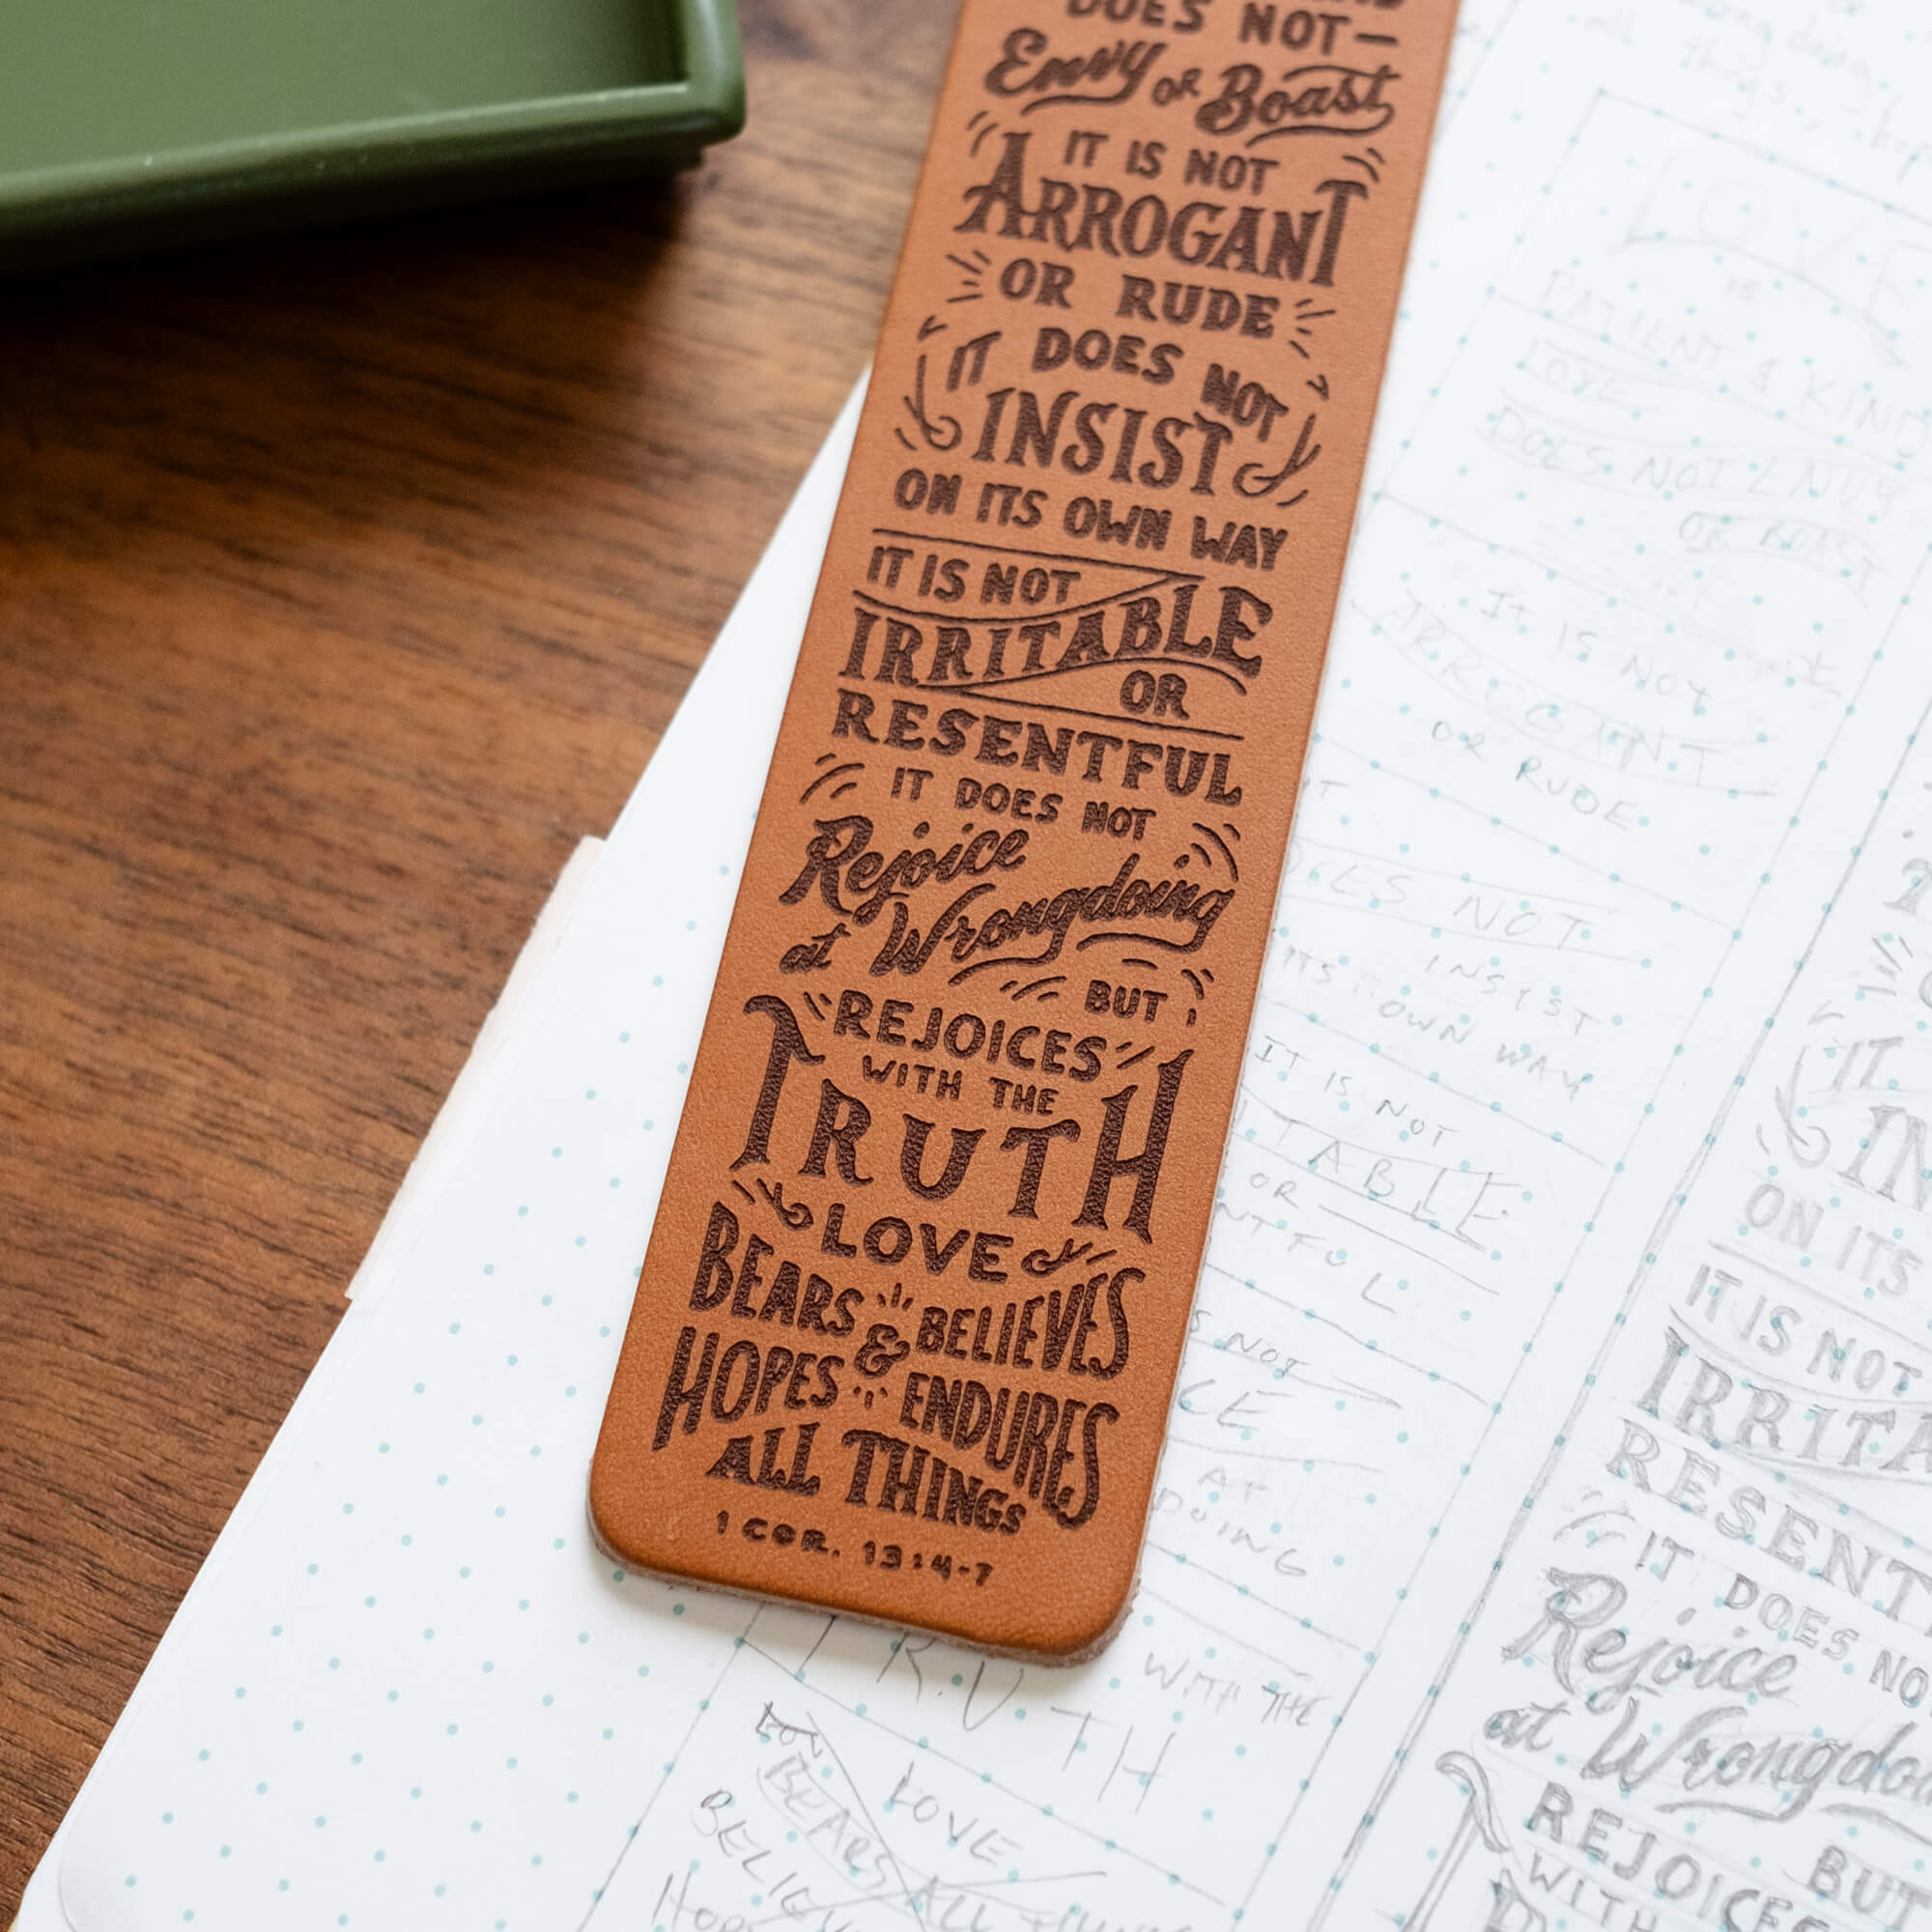 DOES NOT—
Envy OR Boast
IT IS NOT
ARROGANT
OR RUDE
IT DOES NOT
INSIST
ON ITS OWN WAY
IT IS NOT
IRRITABLE
OR
RESENTFUL
IT DOES NOT
Rejoice
at Wrongdoing
BUT
REJOICES
WITH THE
TRUTH
LOVE
BEARS & BELIEVES
HOPES ENDURES
ALL THINGS
1 COR. 13:4-7
LOVE
IS
PATIENT & KIND
LOVE
DOES NOT ENVY
OR BOAST
IT IS NOT
ARROGANT
OR RUDE
NOT
INSIST
ITS OWN WAY
IT IS NOT
OR
NOT
AT
WITH THE
TRUTH
LOVE
BEARS ALL
IT
ON ITS
IT IS NOT
IT DOES
Rejoice
at
BUT